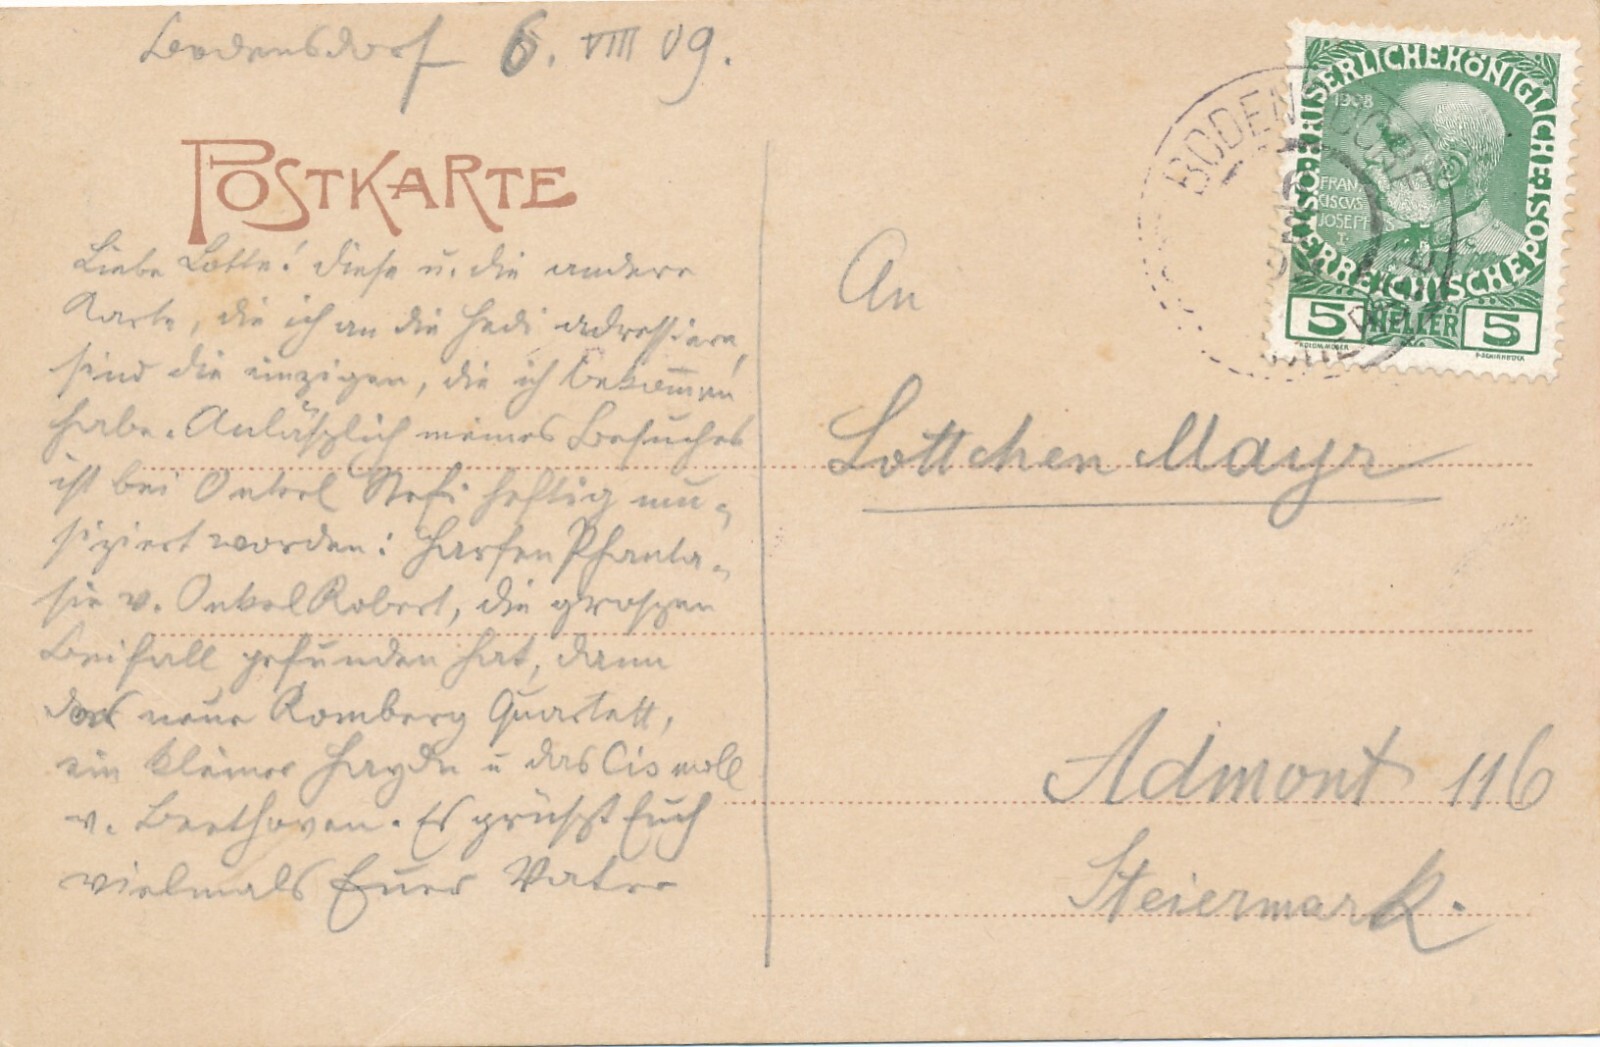 Bodensdorf 6. VIII 09.
POSTKARTE
Liebe Lotte! diese u. die andere
Karte, die ich an die Hedi adressiere,
sind die einzigen, die ich bekommen
habe. Anläszlich meines Besuches
ist bei Onkel Stefi heftig mu-
siziert worden: Harfen Phanta-
sie v. Onkel Robert, die groszen
Beifall gefunden hat, dann
das neue Romberg Quartett,
ein kleiner Haydn u das Cis moll
v. Beethoven. Es grüszt Euch
vielmals Euer Vater
An
Lottchen Mayr
Admont 116
Steiermark.
KAISERLICHEKÖNIGLICHE ÖSTERREICHISCHEPOST
1908
FRAN
CISCVS
JOSEPH
I.
5 HELLER 5
BODENSDORF